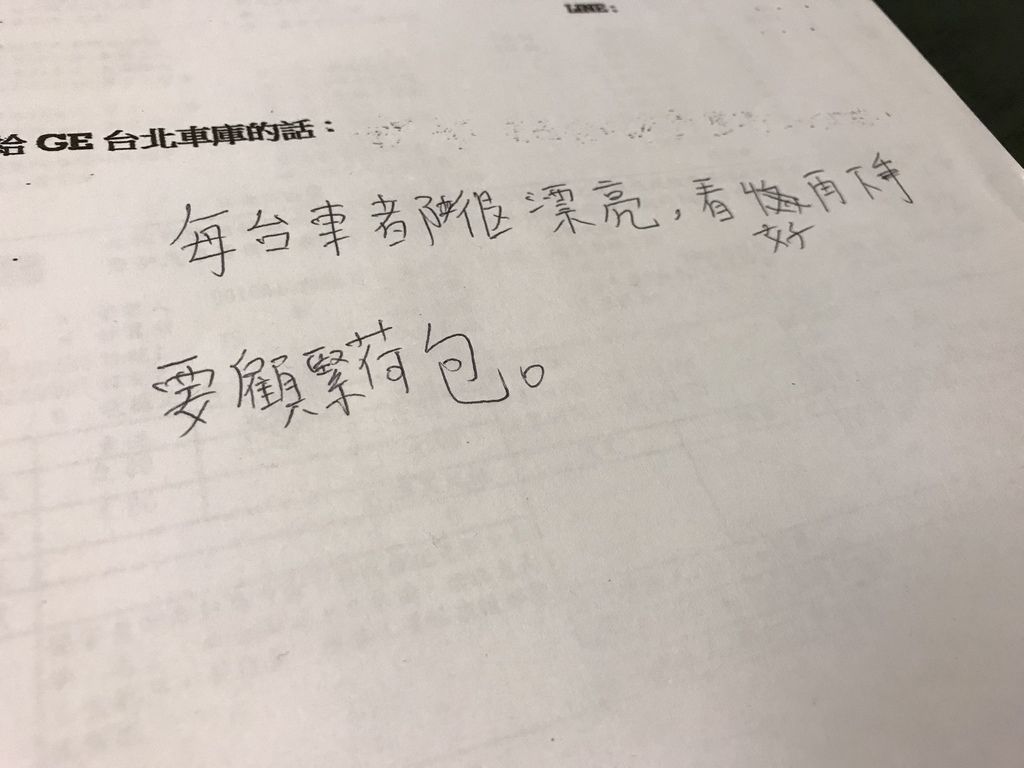 LINE：
給 GE 台北車庫的話：
每台車都很漂亮，看好再下手
要顧緊荷包。